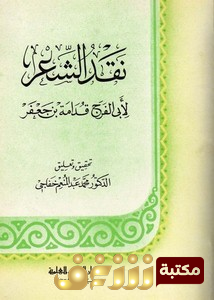 نقد الشعر
لأبي الفرج قدامة بن جعفر
تحقيق وتعليق
الدكتور محمد عبد المنعم خفاجي
مكتبة